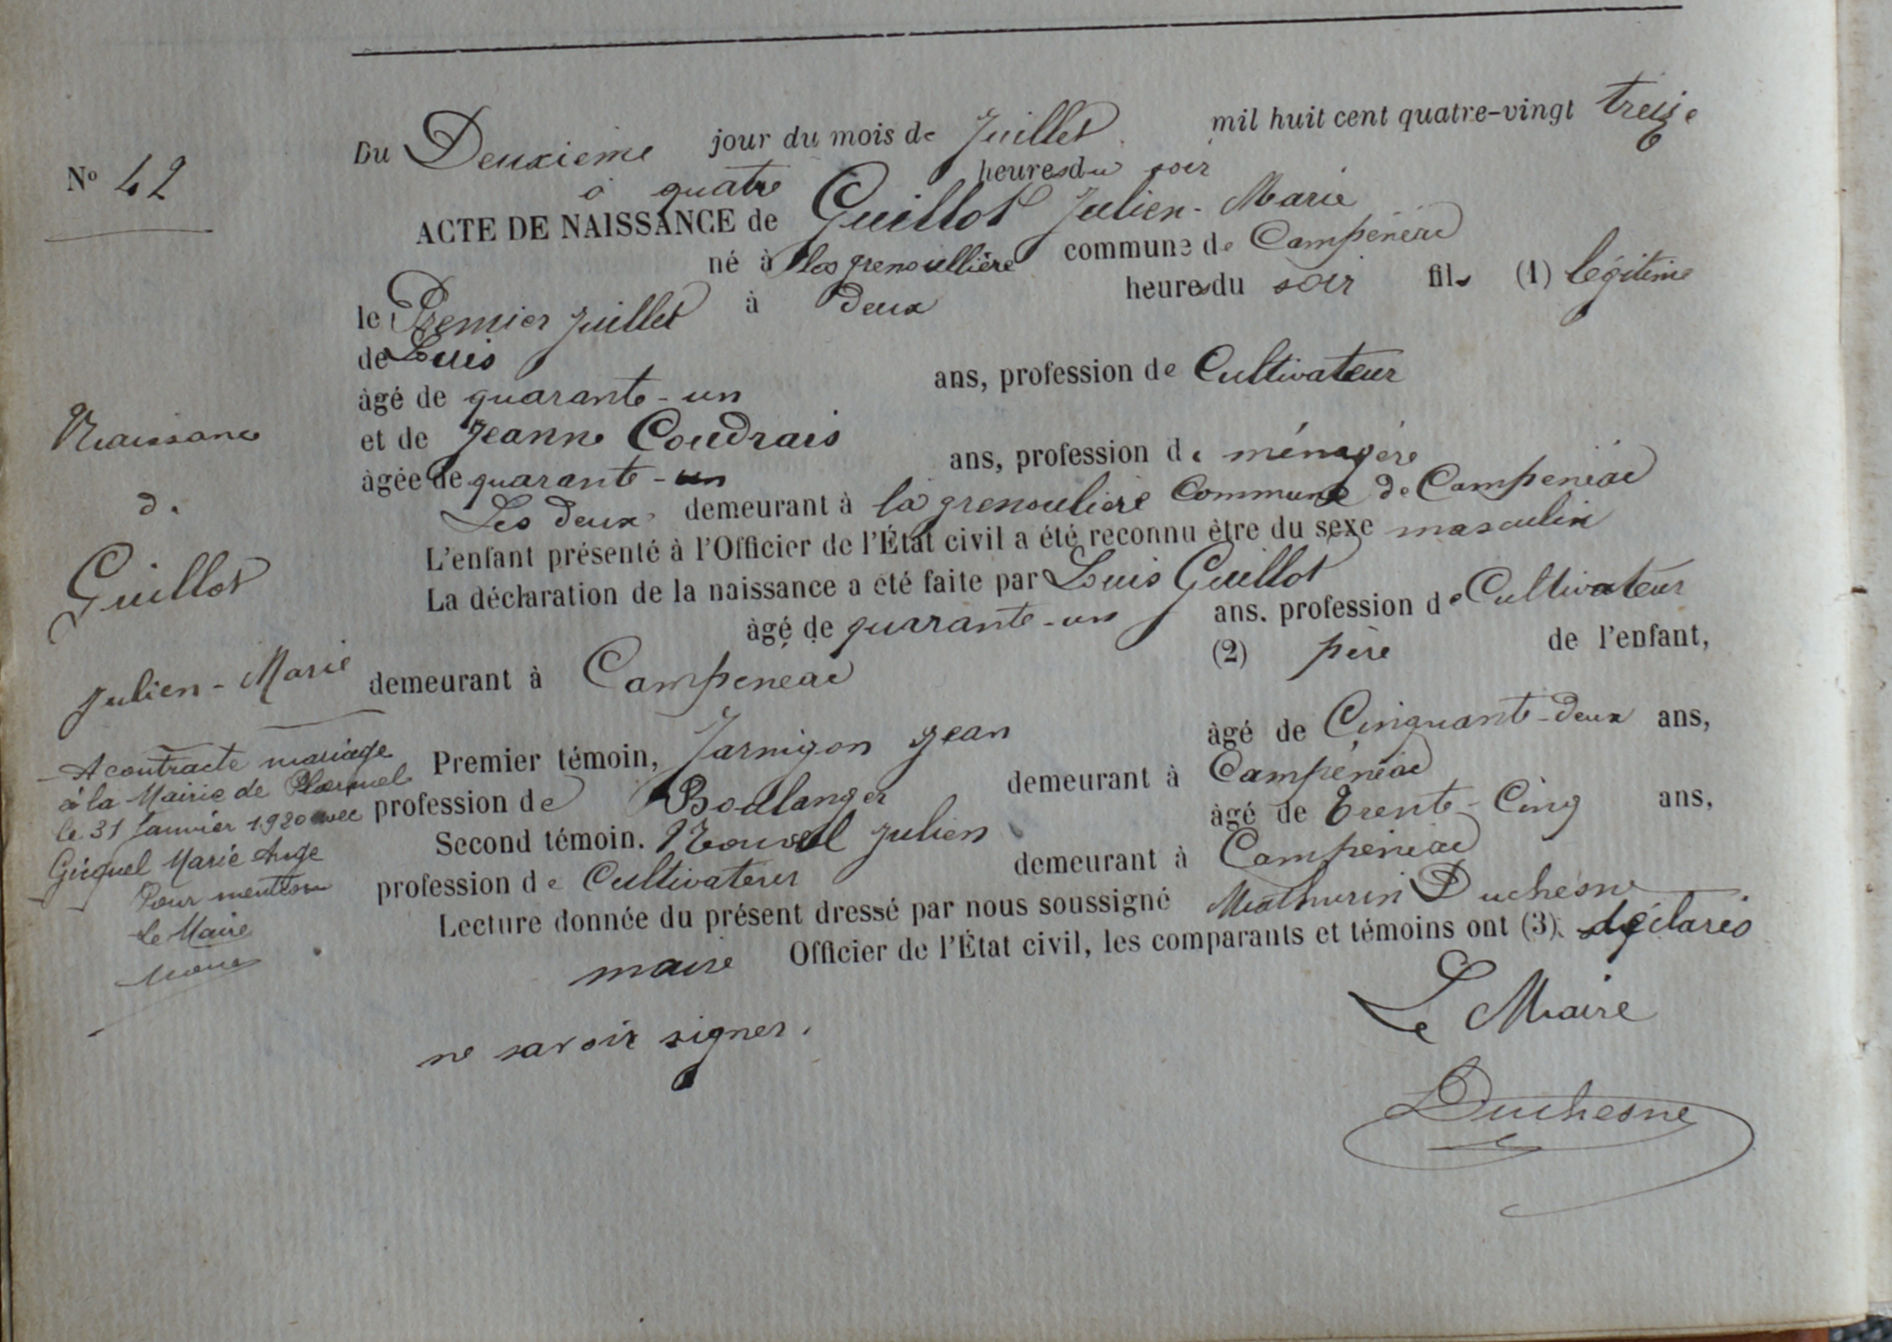 Du Deuxieme jour du mois de Juillet mil huit cent quatre-vingt treize
à quatre heures du soir
N° 42
ACTE DE NAISSANCE de Guillot Julien-Marie
né à la grenoullière commune de Campénéac
le Premier Juillet à deux heures du soir fils (1) légitime
de Louis
âgé de quarante-un ans, profession de Cultivateur
et de Jeanne Coudrais
âgée de quarante-un ans, profession de ménagère
Les deux demeurant à la grenoulière Commune de Campeneac
L'enfant présenté à l'Officier de l'État civil a été reconnu être du sexe masculin
La déclaration de la naissance a été faite par Louis Guillot
âgé de quarante-un ans. profession de Cultivateur
demeurant à Campeneac (2) père de l'enfant,
Premier témoin, Jarnigon Jean âgé de Cinquante-deux ans,
profession de Boulanger demeurant à Campénéac
Second témoin. Nouvel Julien âgé de trente-Cinq ans,
profession de Cultivateur demeurant à Campénéac
Lecture donnée du présent dressé par nous soussigné Mathurin Duchesne
maire Officier de l'État civil, les comparants et témoins ont (3) déclarés
ne savoir signer.
Le Maire
Duchesne
Naissance
de
Guillot
Julien-Marie
A contracté mariage
à la Mairie de Ploermel
le 31 Janvier 1920 avec
Gicquel Marie Ange
Pour mention
Le Maire